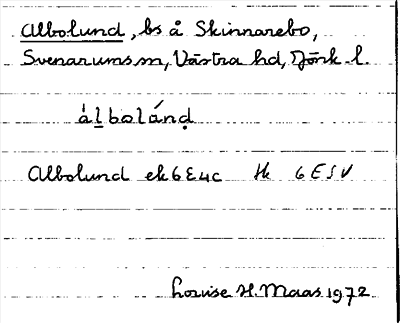 Albolund, bs å Skinnarebo,
Svenarums sn, Västra hd, Jönk. l.
àlbolánḍ
Albolund ek 6E4c Hk 6 E S V
Louise H. Maas 1972